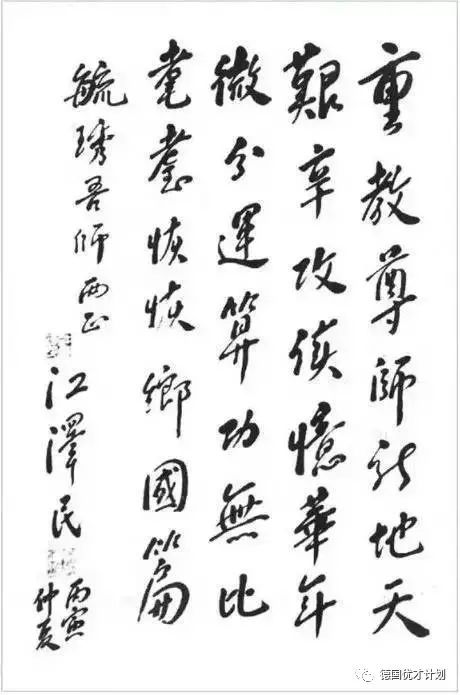 重教尊師新地天
艱辛攻读憶華年
微分運算功無比
耄耋恢恢鄉國篇
毓琇吾師 正
江澤民
丙寅
仲夏
德国优才计划